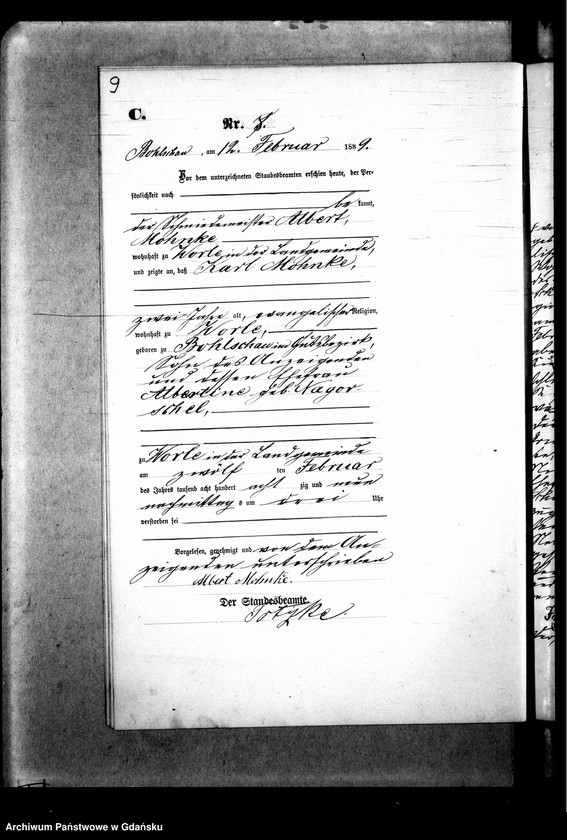 9
C.
Nr. 7.
Bohlschau, am 12. Februar 1889.
Vor dem unterzeichneten Standesbeamten erschien heute, der Per-
sönlichkeit nach
be kannt,
der Schmiedemeister Albert
Mohnke
wohnhaft zu Worle, in der Landgemeinde,
und zeigte an, daß Karl Mohnke,
zwei Jahre alt, evangelischer Religion,
wohnhaft zu Worle,
geboren zu Bohlschau im Gutsbezirk,
Sohn des Anzeigenden
und dessen Ehefrau
Albertine geb. Nagor
schel,
zu Worle in der Landgemeinde
am zwölf ten Februar
des Jahres tausend acht hundert acht zig und neun
nachmittags um drei Uhr
verstorben sei
Vorgelesen, genehmigt und von dem An-
zeigenden unterschrieben
Albert Mohnke.
Der Standesbeamte.
Archiwum Państwowe w Gdańsku